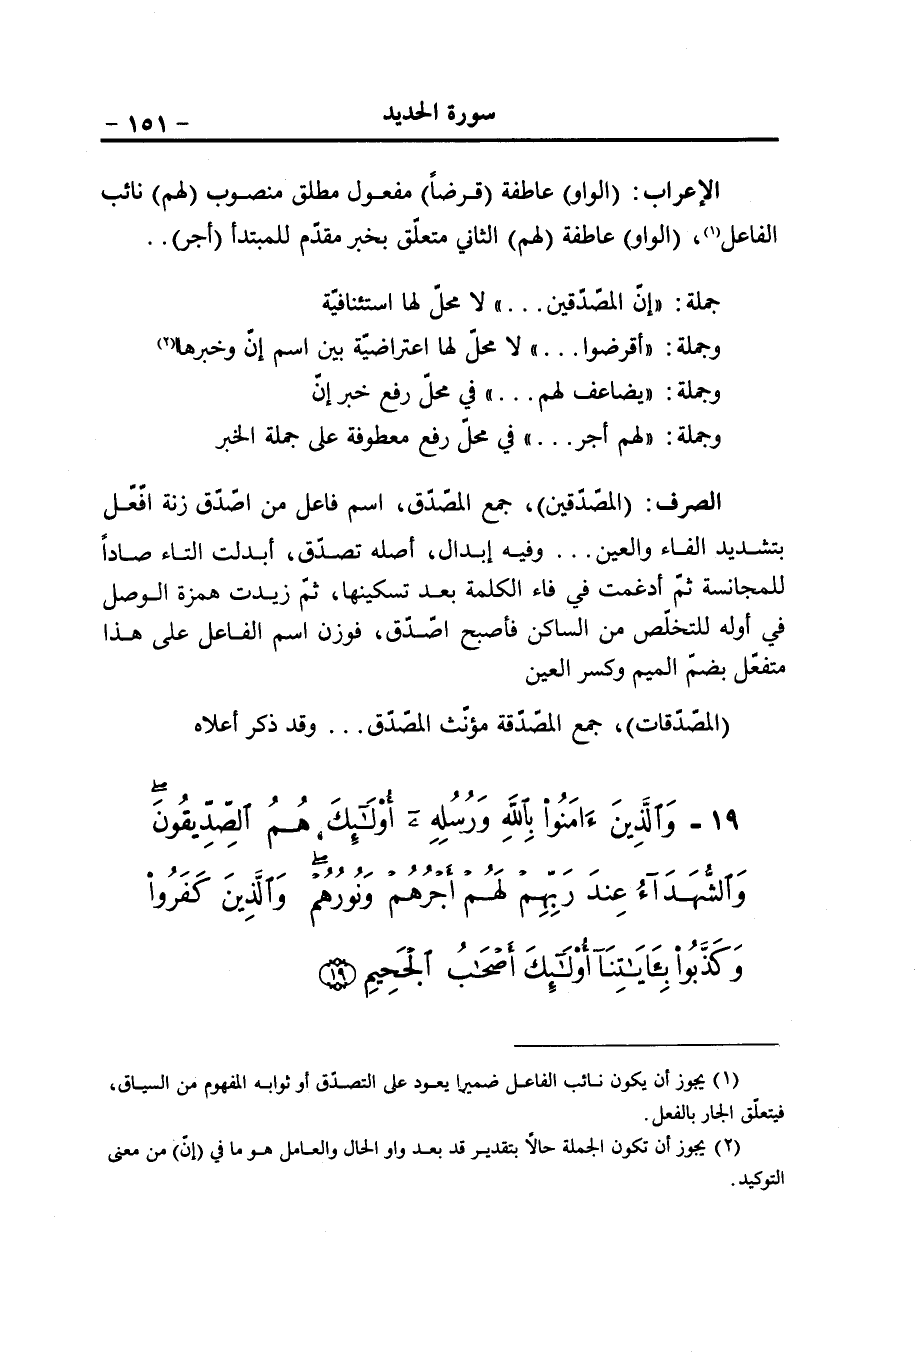 سورة الحديد - ١٥١ -
الإعراب: (الواو) عاطفة (قـرضاً) مفعـول مطلق منصـوب (لهم) نائب
الفاعل(١)، (الواو) عاطفة (لهم) الثاني متعلّق بخبر مقدّم للمبتدأ (أجر)..
جملة: «إنّ المصّدّقين...» لا محلّ لها استئنافيّة
وجملة: «أقرضوا...» لا محلّ لها اعتراضيّة بين اسم إنّ وخبرها(٢)
وجملة: «يضاعف لهم...» في محلّ رفع خبر إنّ
وجملة: «لهم أجر...» في محلّ رفع معطوفة على جملة الخبر
الصرف: (المصّدّقين)، جمع المصّدّق، اسم فاعل من اصّدّق زنة افّعّـل
بتشـديد الفـاء والعين... وفيـه إبـدال، أصله تصـدّق، أبـدلت التـاء صـاداً
للمجانسة ثمّ أدغمت في فاء الكلمة بعـد تسكينها، ثمّ زيـدت همزة الـوصل
في أوله للتخلّص من الساكن فأصبح اصّـدّق، فوزن اسم الفـاعل على هـذا
متفعّل بضمّ الميم وكسر العين
(المصّدّقات)، جمع المصّدّقة مؤنّث المصّدّق... وقد ذكر أعلاه
١٩ - وَٱلَّذِينَ ءَامَنُواْ بِٱللَّهِ وَرُسُلِهِۦٓ أُوْلَـٰٓئِكَ هُمُ ٱلصِّدِّيقُونَۖ
وَٱلشُّهَدَآءُ عِندَ رَبِّهِمْ لَهُمْ أَجْرُهُمْ وَنُورُهُمْۖ وَٱلَّذِينَ كَفَرُواْ
وَكَذَّبُواْ بِـَٔايَـٰتِنَآ أُوْلَـٰٓئِكَ أَصْحَـٰبُ ٱلْجَحِيمِ ﴿١٩﴾
(١) يجوز أن يكون نـائب الفاعـل ضميرا يعود على التصـدّق أو ثوابـه المفهوم من السيـاق،
فيتعلّق الجار بالفعل.
(٢) يجوز أن تكون الجملة حالاً بتقديـر قد بعـد واو الحال والعـامل هـو ما في (إنّ) من معنى
التوكيد.